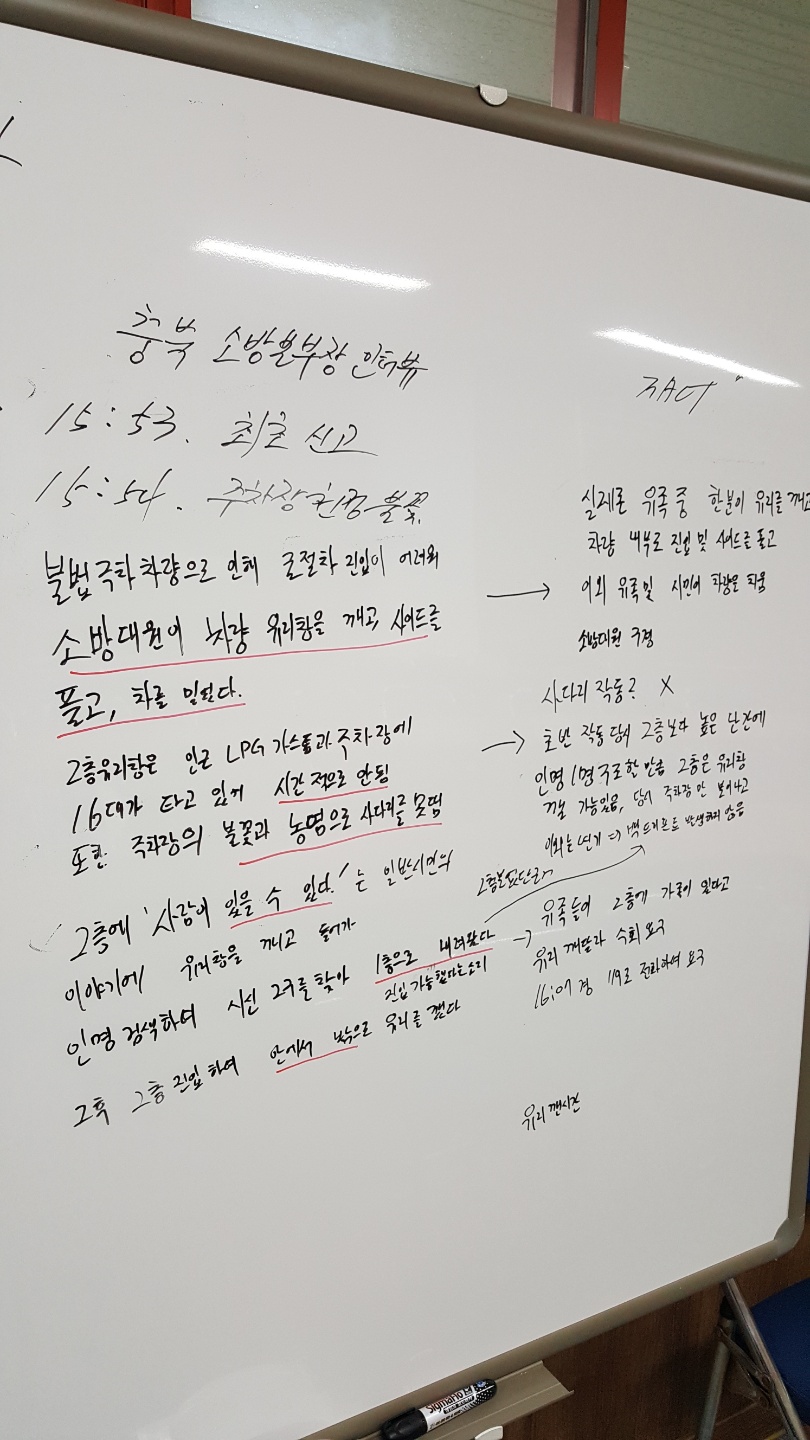 충북 소방본부장 인터뷰
15:53. 최초 신고
15:54. 주차장 천정 불꽃
불법 주차 차량으로 인해 굴절차 진입이 어려워
소방대원이 차량 유리창을 깨고, 사이드를
풀고, 차를 밀었다.
2층유리창은 인근 LPG 가스통과 주차장에
16대가 타고 있어 시간적으로 안됨
또한 주차장의 불꽃과 농염으로 사다리를 못댐
2층에 '사람이 있을 수 있다.' 는 일반시민의
이야기에 유리창을 깨고 들어가
인명 검색하여 시신 2구를 찾아 1층으로 내려왔다
진입가능했다는소리
그후 2층 진입하여 안에서 밖으로 유리를 깼다
FACT "
실제론 유족 중 한분이 유리를 깨고
차량 내부로 진입 및 사이드를 풀고
이외 유족 및 시민이 차량을 치움
소방대원 구경
사다리 작동? X
초반 작동 당시 2층보다 높은 난간에
인명 1명 구조한 만큼 2층은 유리창
깰 가능있음, 당시 주차장만 보이고
이외는 연기 => 백드래프트 발생하지 않음
유족들이 2층에 가족이 있다고
유리 깨달라 수회 요구
16:07 경 119로 전화하여 요구
유리 깬시간
Sigmaflo